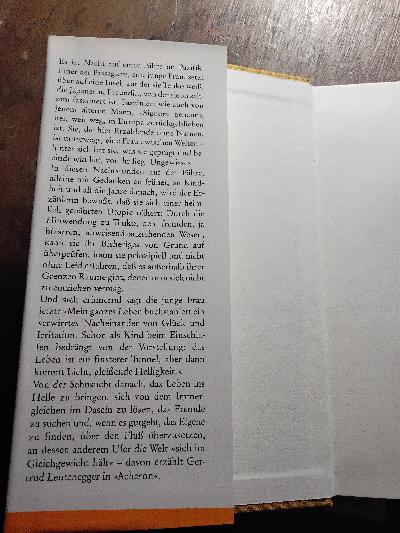 Es ist Nacht auf einer Fähre im Pazifik.
Einer der Passagiere, eine junge Frau, setzt
über auf eine Insel, auf der sie Tenko weiß,
die Japanerin, Freundin, von der sie
fasziniert ist, fasziniert wie auch von
jenem älteren Mann, »Signore« genannt,
der, weit weg, in Europa zurückgeblieben
ist. Sie, die hier Erzählende ohne Namen,
ist unterwegs, eine Frau zwischen Welten –
hinter sich hat sie, was sie geprägt und be-
eindruckt hat, vor ihr liegt Ungewisses.
In diesen Nachtstunden auf der Fähre,
alleine mit Gedanken an früher, an Kind-
heit und all die Jahre danach, wird der Er-
zählerin bewußt, daß sie sich einer heim-
lich genährten Utopie nähert: Durch die
Hinwendung zu Tenko, dem fremden, ja
bizarren, abweisend-anziehenden Wesen,
kann sie ihr Bisheriges von Grund auf
überprüfen, kann sie prinzipiell und nicht
ohne Leid erfahren, daß es außerhalb ihrer
Grenzen Räume gibt, denen man sich nicht
zu entziehen vermag.
Und sich erinnernd sagt die junge Frau
jetzt: »Mein ganzes Leben buchstabiert ein
verwirrtes Nacheinander von Glück und
Irritation. Schon als Kind beim Einschla-
fen bedrängt von der Vorstellung: das
Leben ist ein finsterer Tunnel, aber dann
kommt Licht, gleißende Helligkeit.«
Von der Sehnsucht danach, das Leben ins
Helle zu bringen, sich von dem Immer-
gleichen im Dasein zu lösen, das Fremde
zu suchen und, wenn es gutgeht, das Eigene
zu finden, über den Fluß überzusetzen,
an dessen anderem Ufer die Welt »sich im
Gleichgewicht hält« – davon erzählt Ger-
trud Leutenegger in »Acheron«.